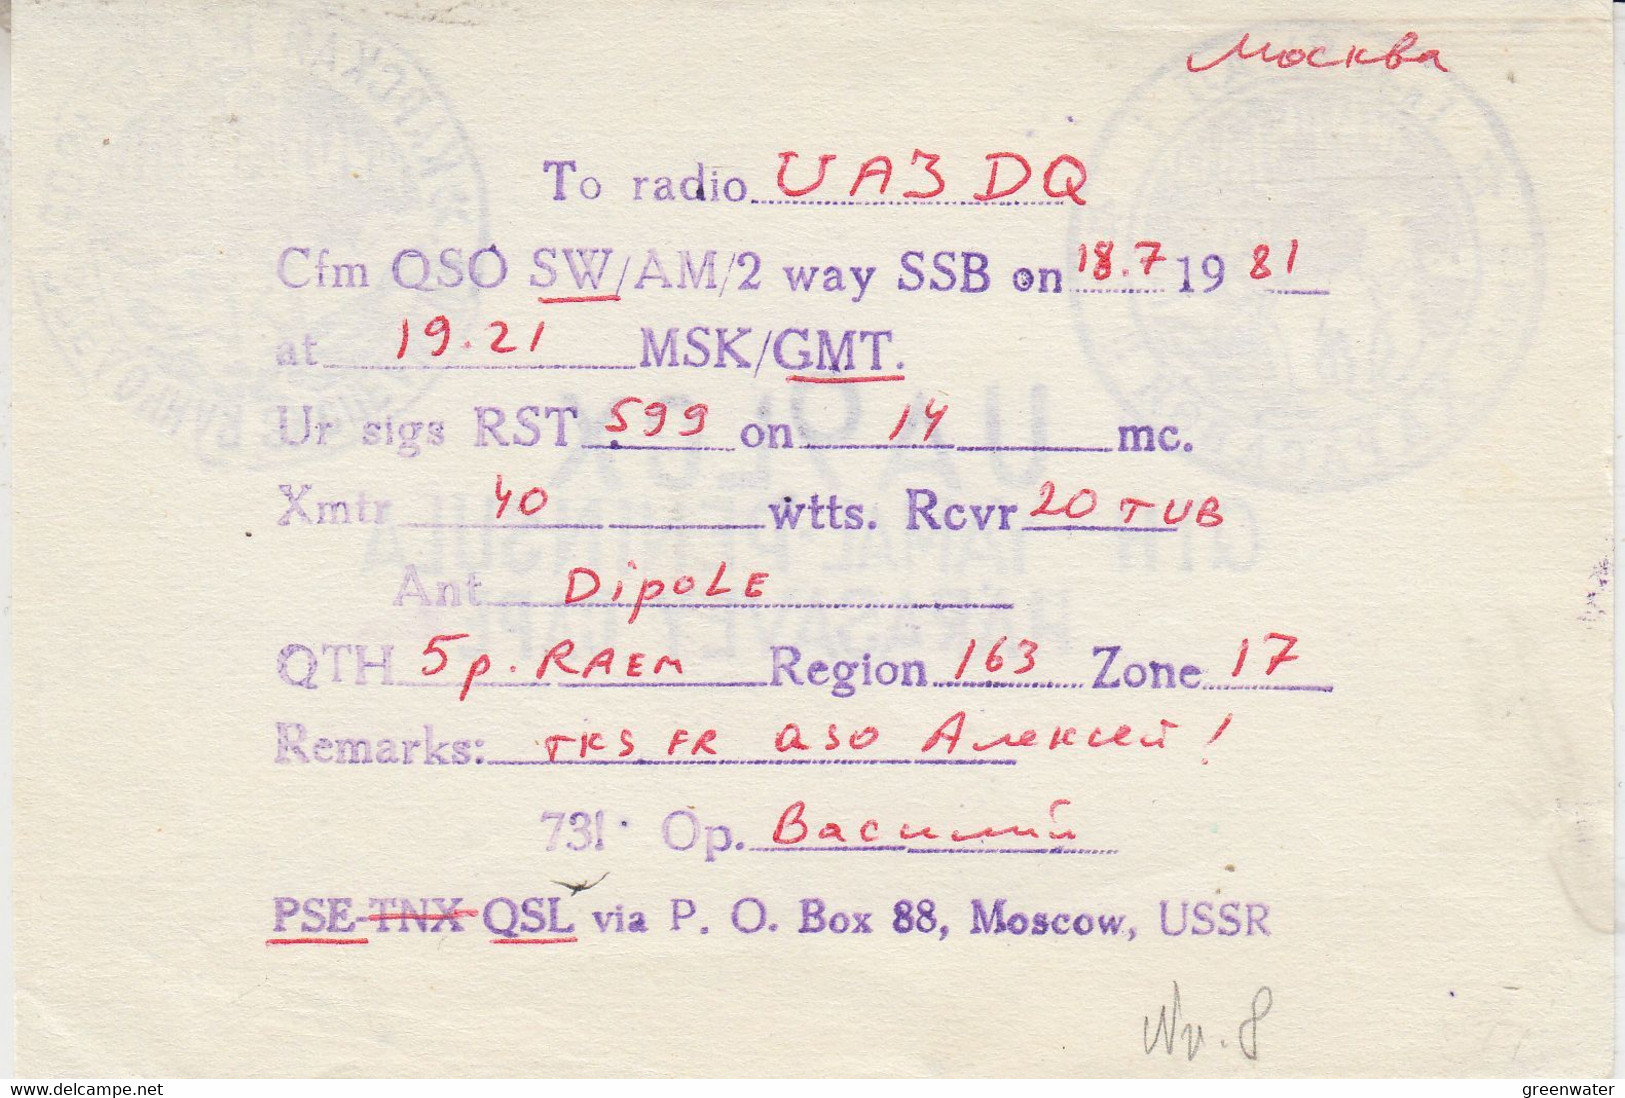 Москва
To radio UA3DQ
Cfm QSO SW/AM/2 way SSB on 18.7 1981
at 19.21 MSK/GMT.
Ur sigs RST 599 on 14 mc.
Xmtr 40 wtts. Rcvr 20 TUB
Ant DipoLE
QTH 5p. RAEM Region 163 Zone 17
Remarks: TKS FR QSO Алексей!
73! Op. Василий
PSE-TNX QSL via P. O. Box 88, Moscow, USSR
Nr. 8
greenwater